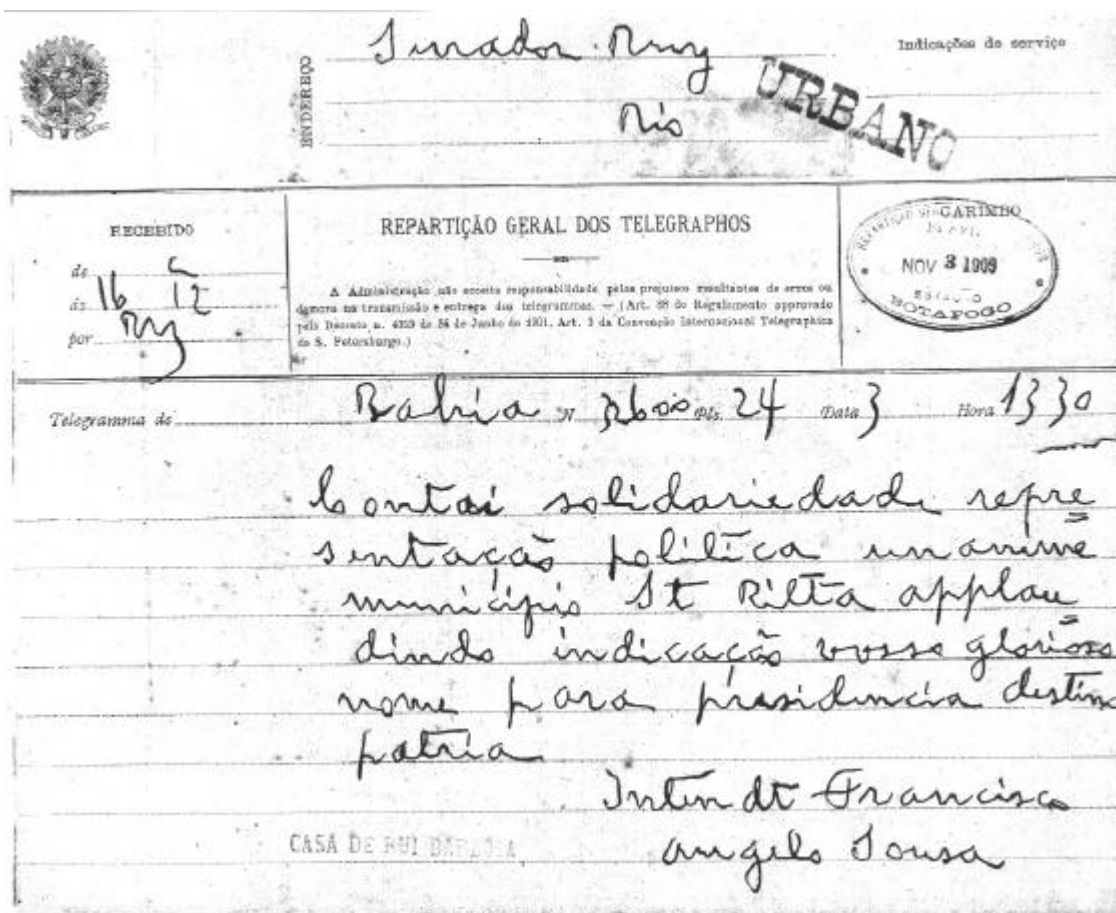 Senador Ruy
Indicações de serviço
ENDEREÇO
Rio
URBANO
RECEBIDO
REPARTIÇÃO GERAL DOS TELEGRAPHOS
CARIMBO
de C
ás 16 12
por Ruy
A Administração não acceita responsabilidade pelos prejuizos resultantes de erros ou
demora na transmissão e entrega dos telegrammas. — (Art. 38 do Regulamento approvado
pelo Decreto n. 4053 de 24 de Junho de 1901, Art. 3 da Convenção Internacional Telegraphica
de S. Petersburgo.)
NOV 3 1909
ESTAÇÃO
BOTAFOGO
Telegramma de Bahia N 3600 Pls. 24 Data 3 Hora 1330
Contai solidariedade repre
sentação politica unanime
municipio St Ritta applau
dindo indicação vosso glorioso
nome para presidencia destin
patria
Intendt Francisco
angelo Sousa
CASA DE RUI BARBOSA